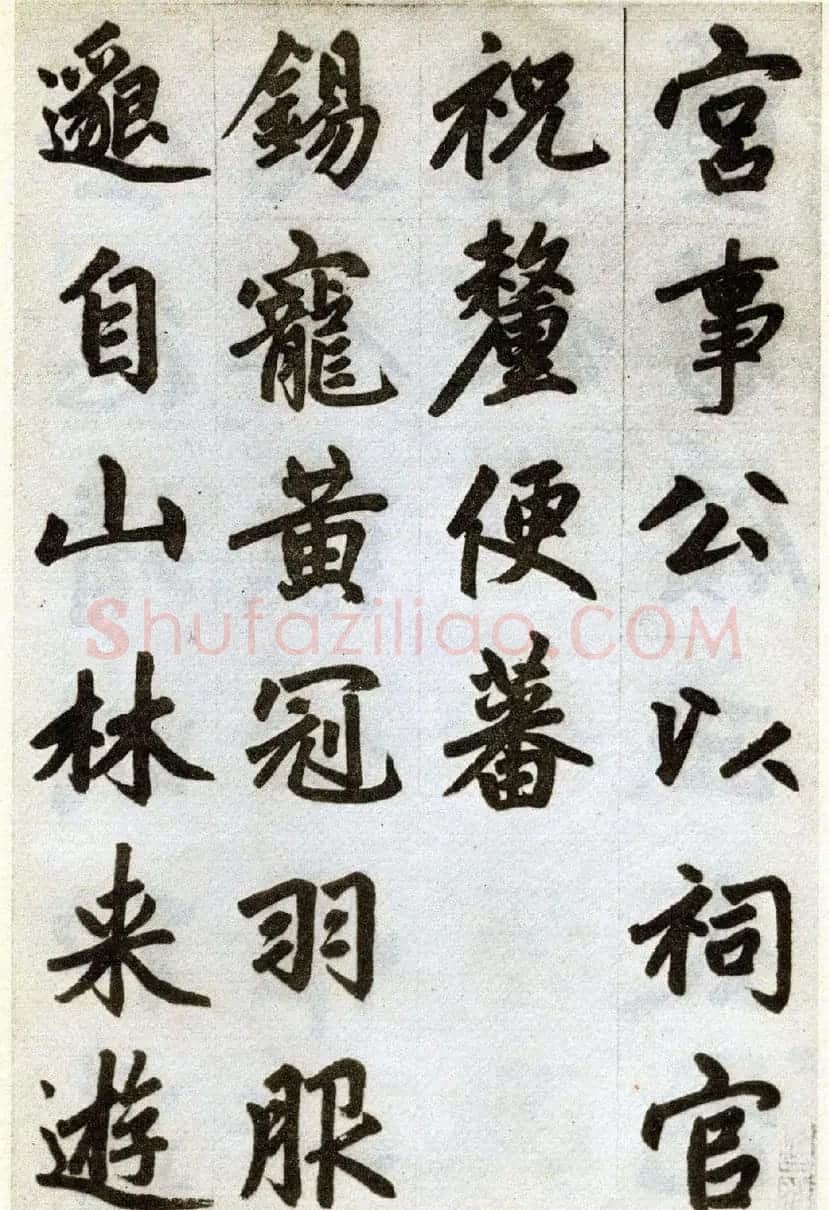 宮事公以祠官
祝釐便蕃
錫寵黃冠羽服
邈自山林来遊
Shufaziliao.COM